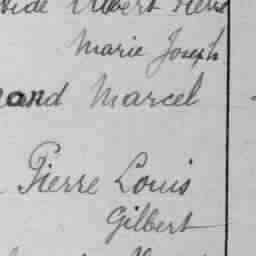 Albert Pierre
Marie Joseph
and Marcel
Pierre Louis
Gilbert